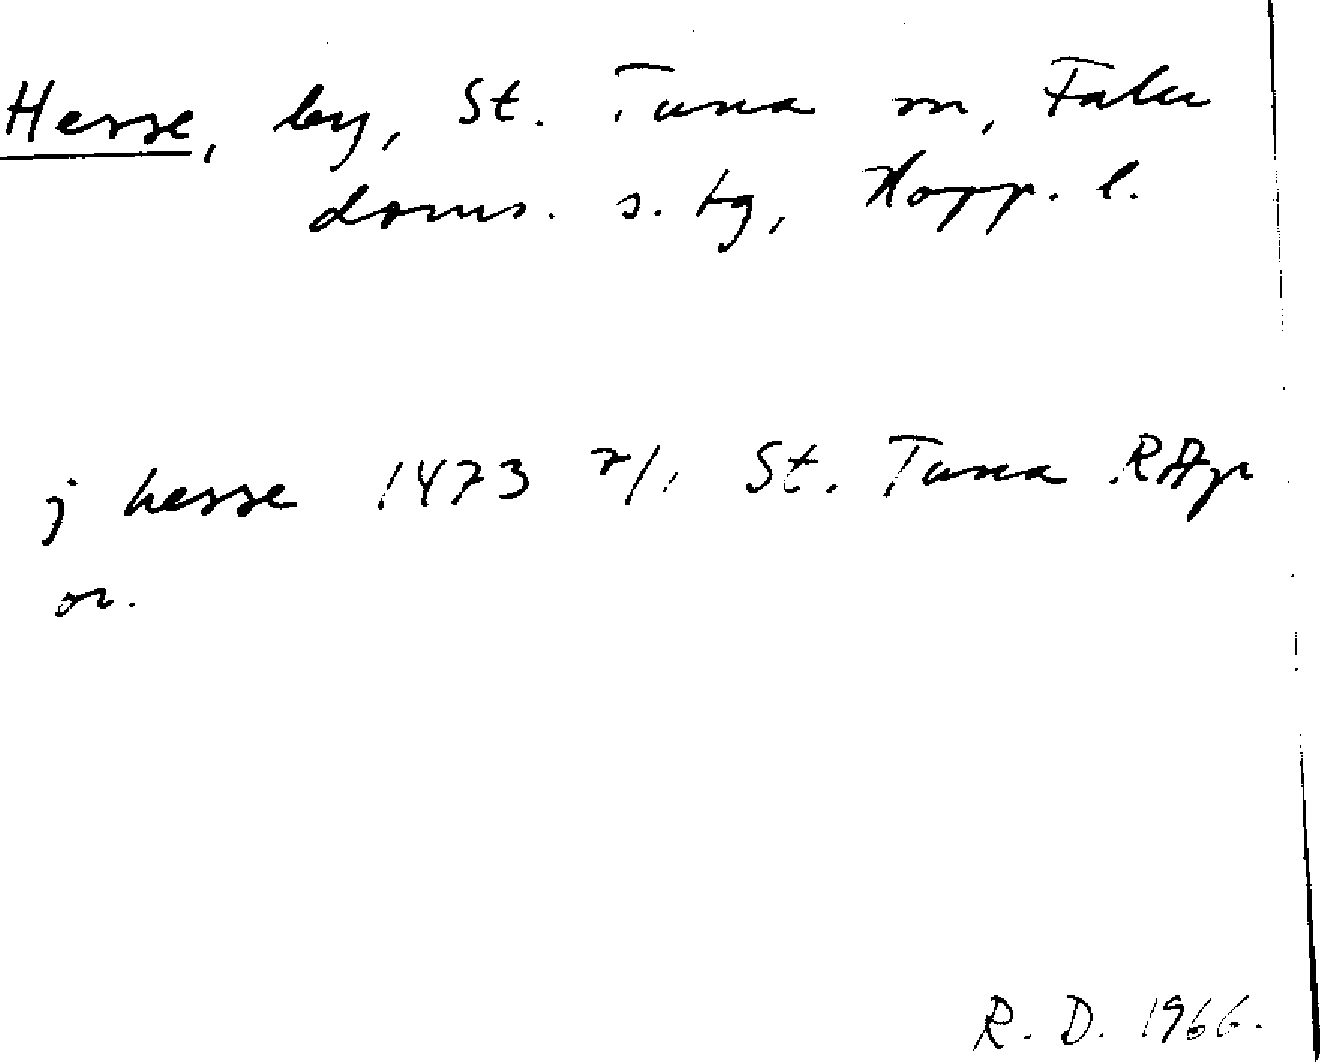 Hesse, by, St. Tuna sn, Falu
doms. s. tg, Kopp. l.
j hesse 1473 7/1 St. Tuna RAp
or.
R. D. 1966.